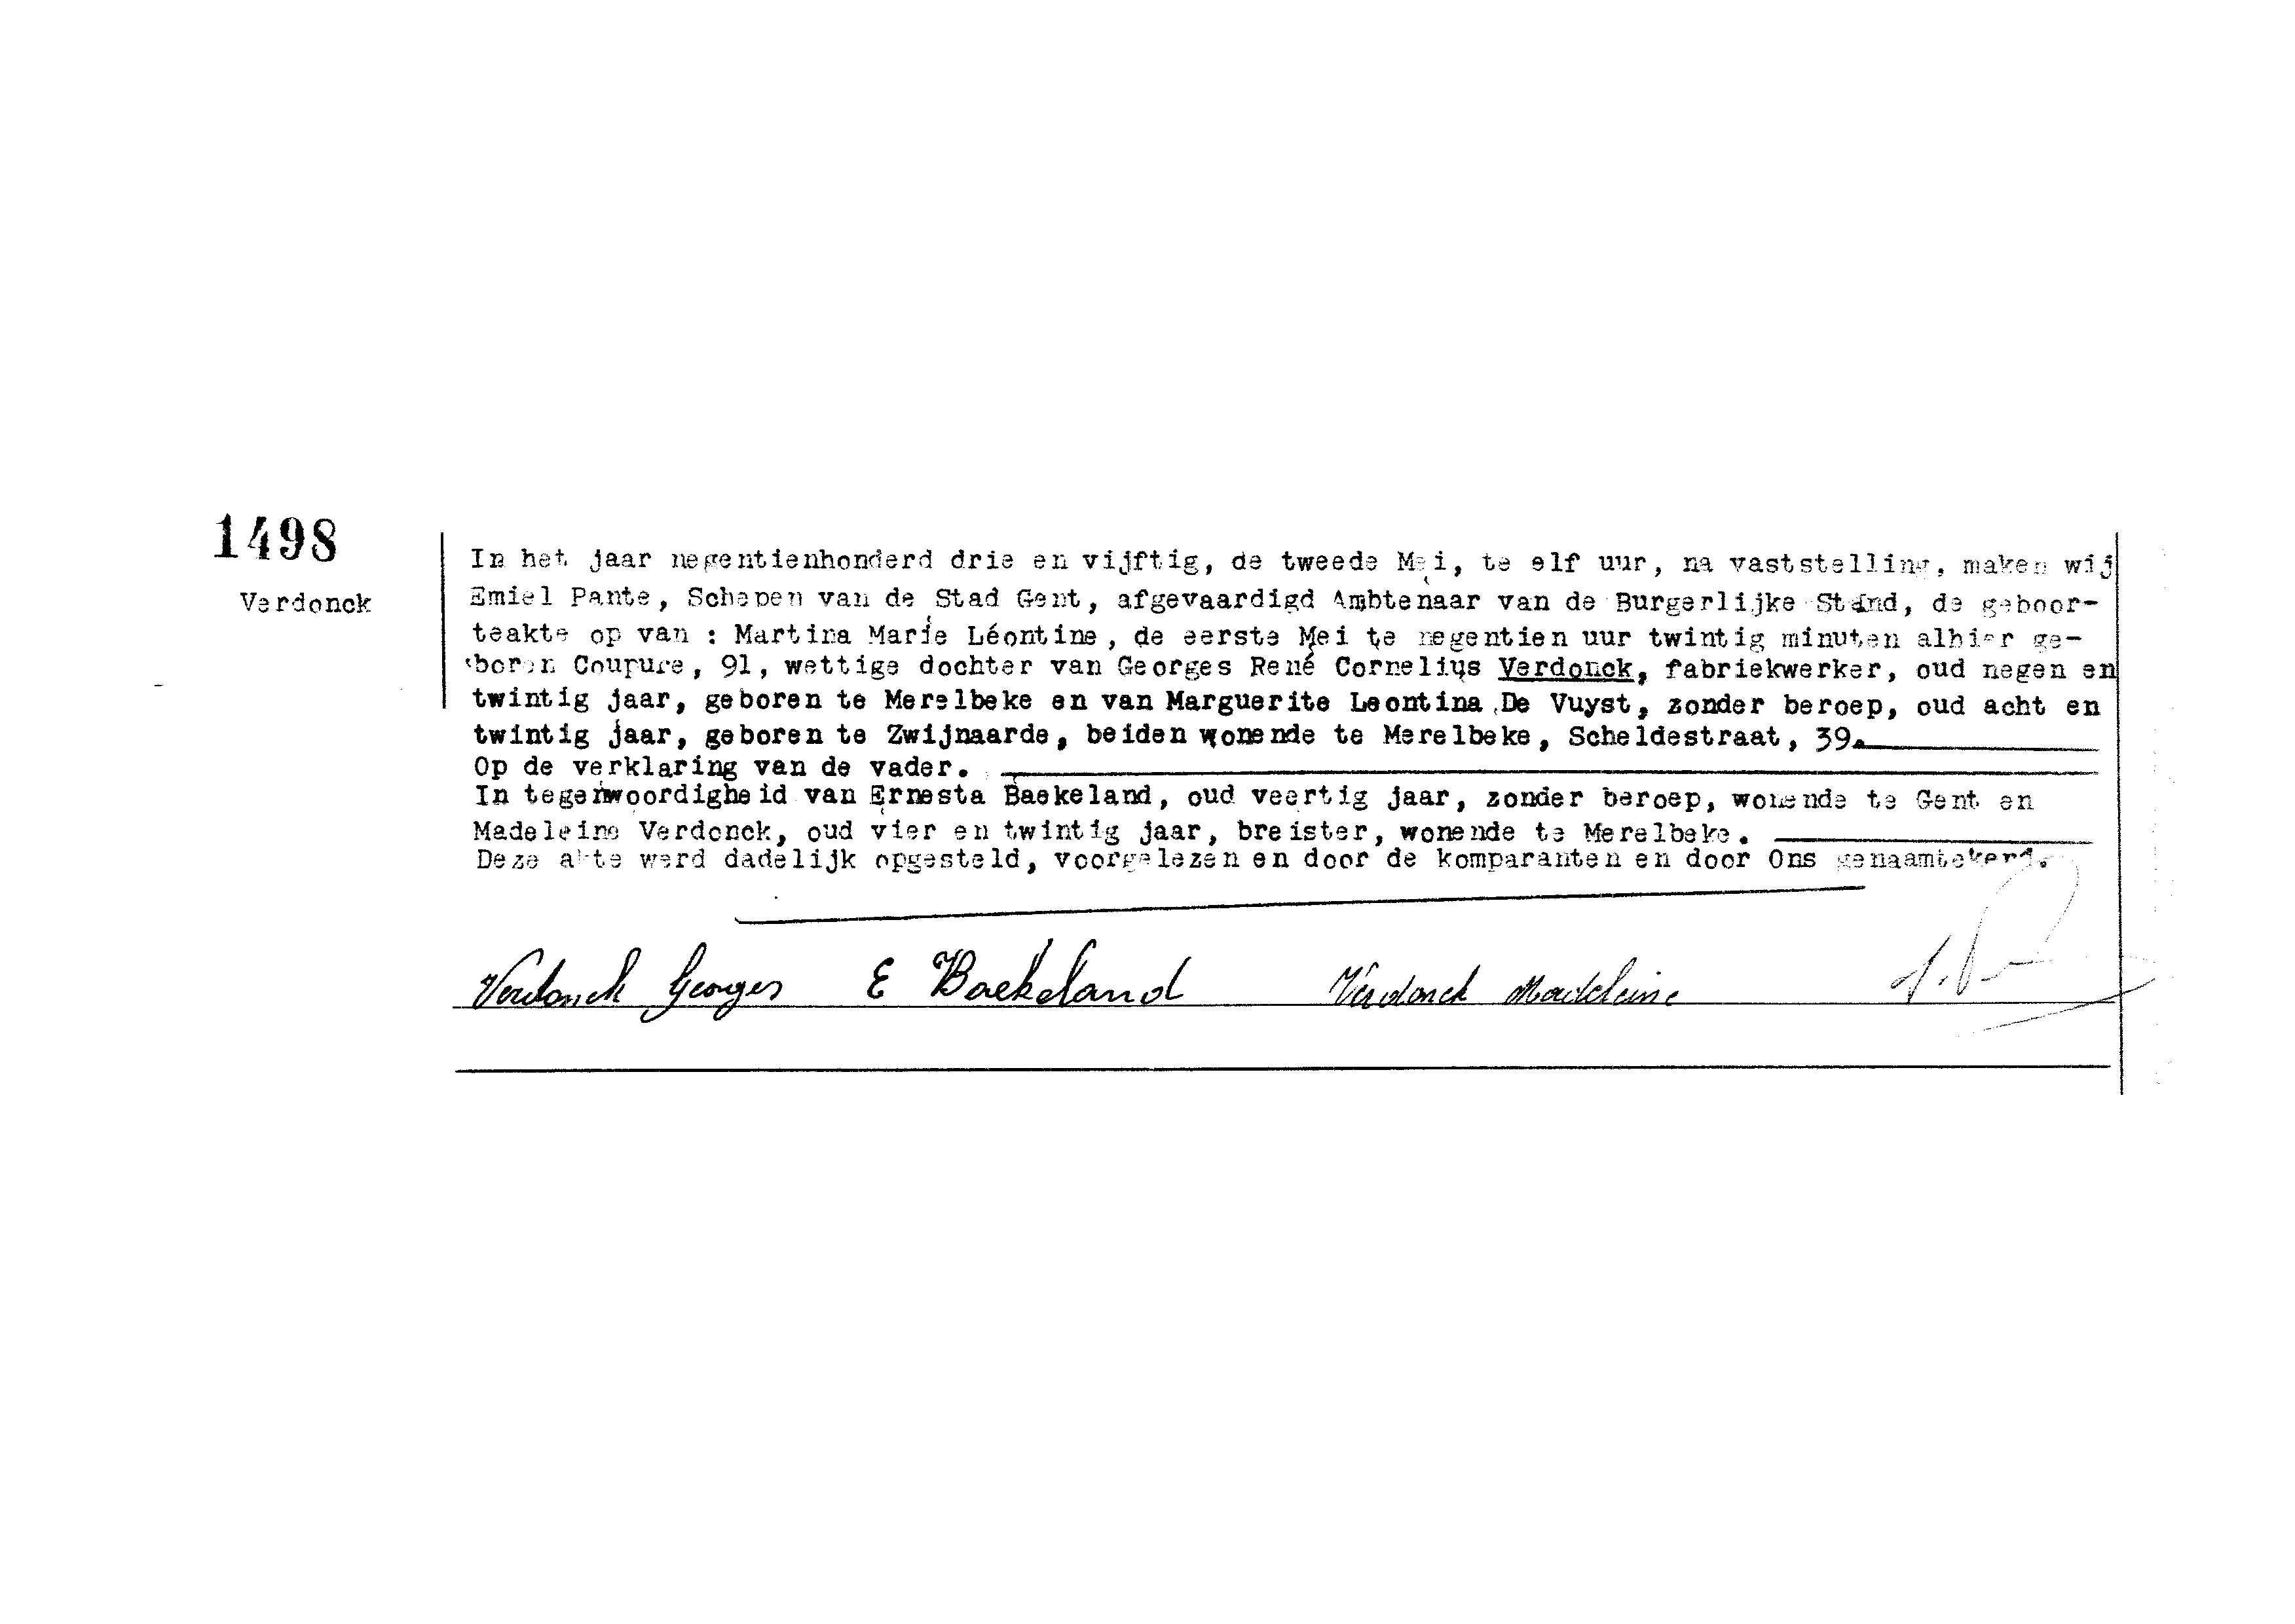 1498
Verdonck
In het jaar negentienhonderd drie en vijftig, de tweede Mei, te elf uur, na vaststelling, maken wij
Emiel Pante, Schepen van de Stad Gent, afgevaardigd Ambtenaar van de Burgerlijke Stand, de geboor-
teakte op van : Martina Marie Léontine, de eerste Mei te negentien uur twintig minuten alhier ge-
boren Coupure, 91, wettige dochter van Georges René Cornelius Verdonck, fabriekwerker, oud negen en
twintig jaar, geboren te Merelbeke en van Marguerite Leontina De Vuyst, zonder beroep, oud acht en
twintig jaar, geboren te Zwijnaarde, beiden wonende te Merelbeke, Scheldestraat, 39.
Op de verklaring van de vader.
In tegenwoordigheid van Ernesta Baekeland, oud veertig jaar, zonder beroep, wonende te Gent en
Madeleine Verdonck, oud vier en twintig jaar, breister, wonende te Merelbeke.
Deze akte werd dadelijk opgesteld, voorgelezen en door de komparanten en door Ons genaamtekend.
Verdonck Georges E Baekeland Verdonck Madeleine